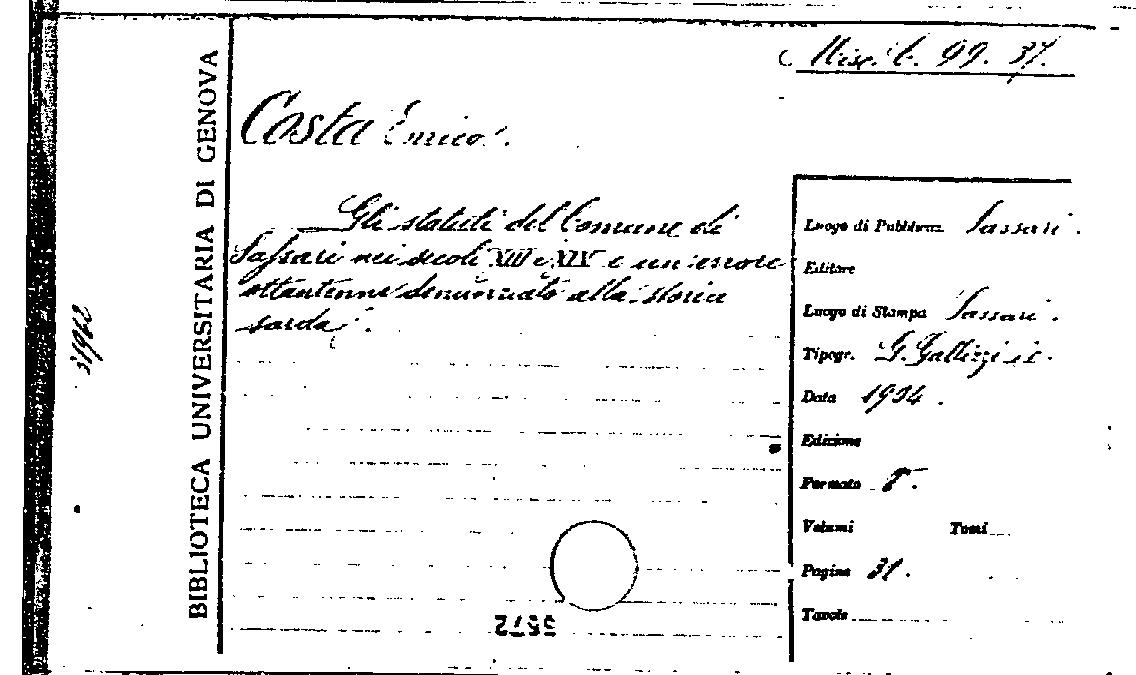 Misc. C. 99. 37.
BIBLIOTECA UNIVERSITARIA DI GENOVA
31962
Costa Enrico.
Gli statuti del Comune di
Sassari nei secoli XIII e XIV e un errore
ottantenne denunziato alla storia
sarda.
Luogo di Pubblicaz. Sassari.
Editore
Luogo di Stampa Sassari.
Tipogr. G. Gallizzi
Data 1904.
Edizione
Formato 8°.
Volumi Tomi
Pagine 31.
Tavole